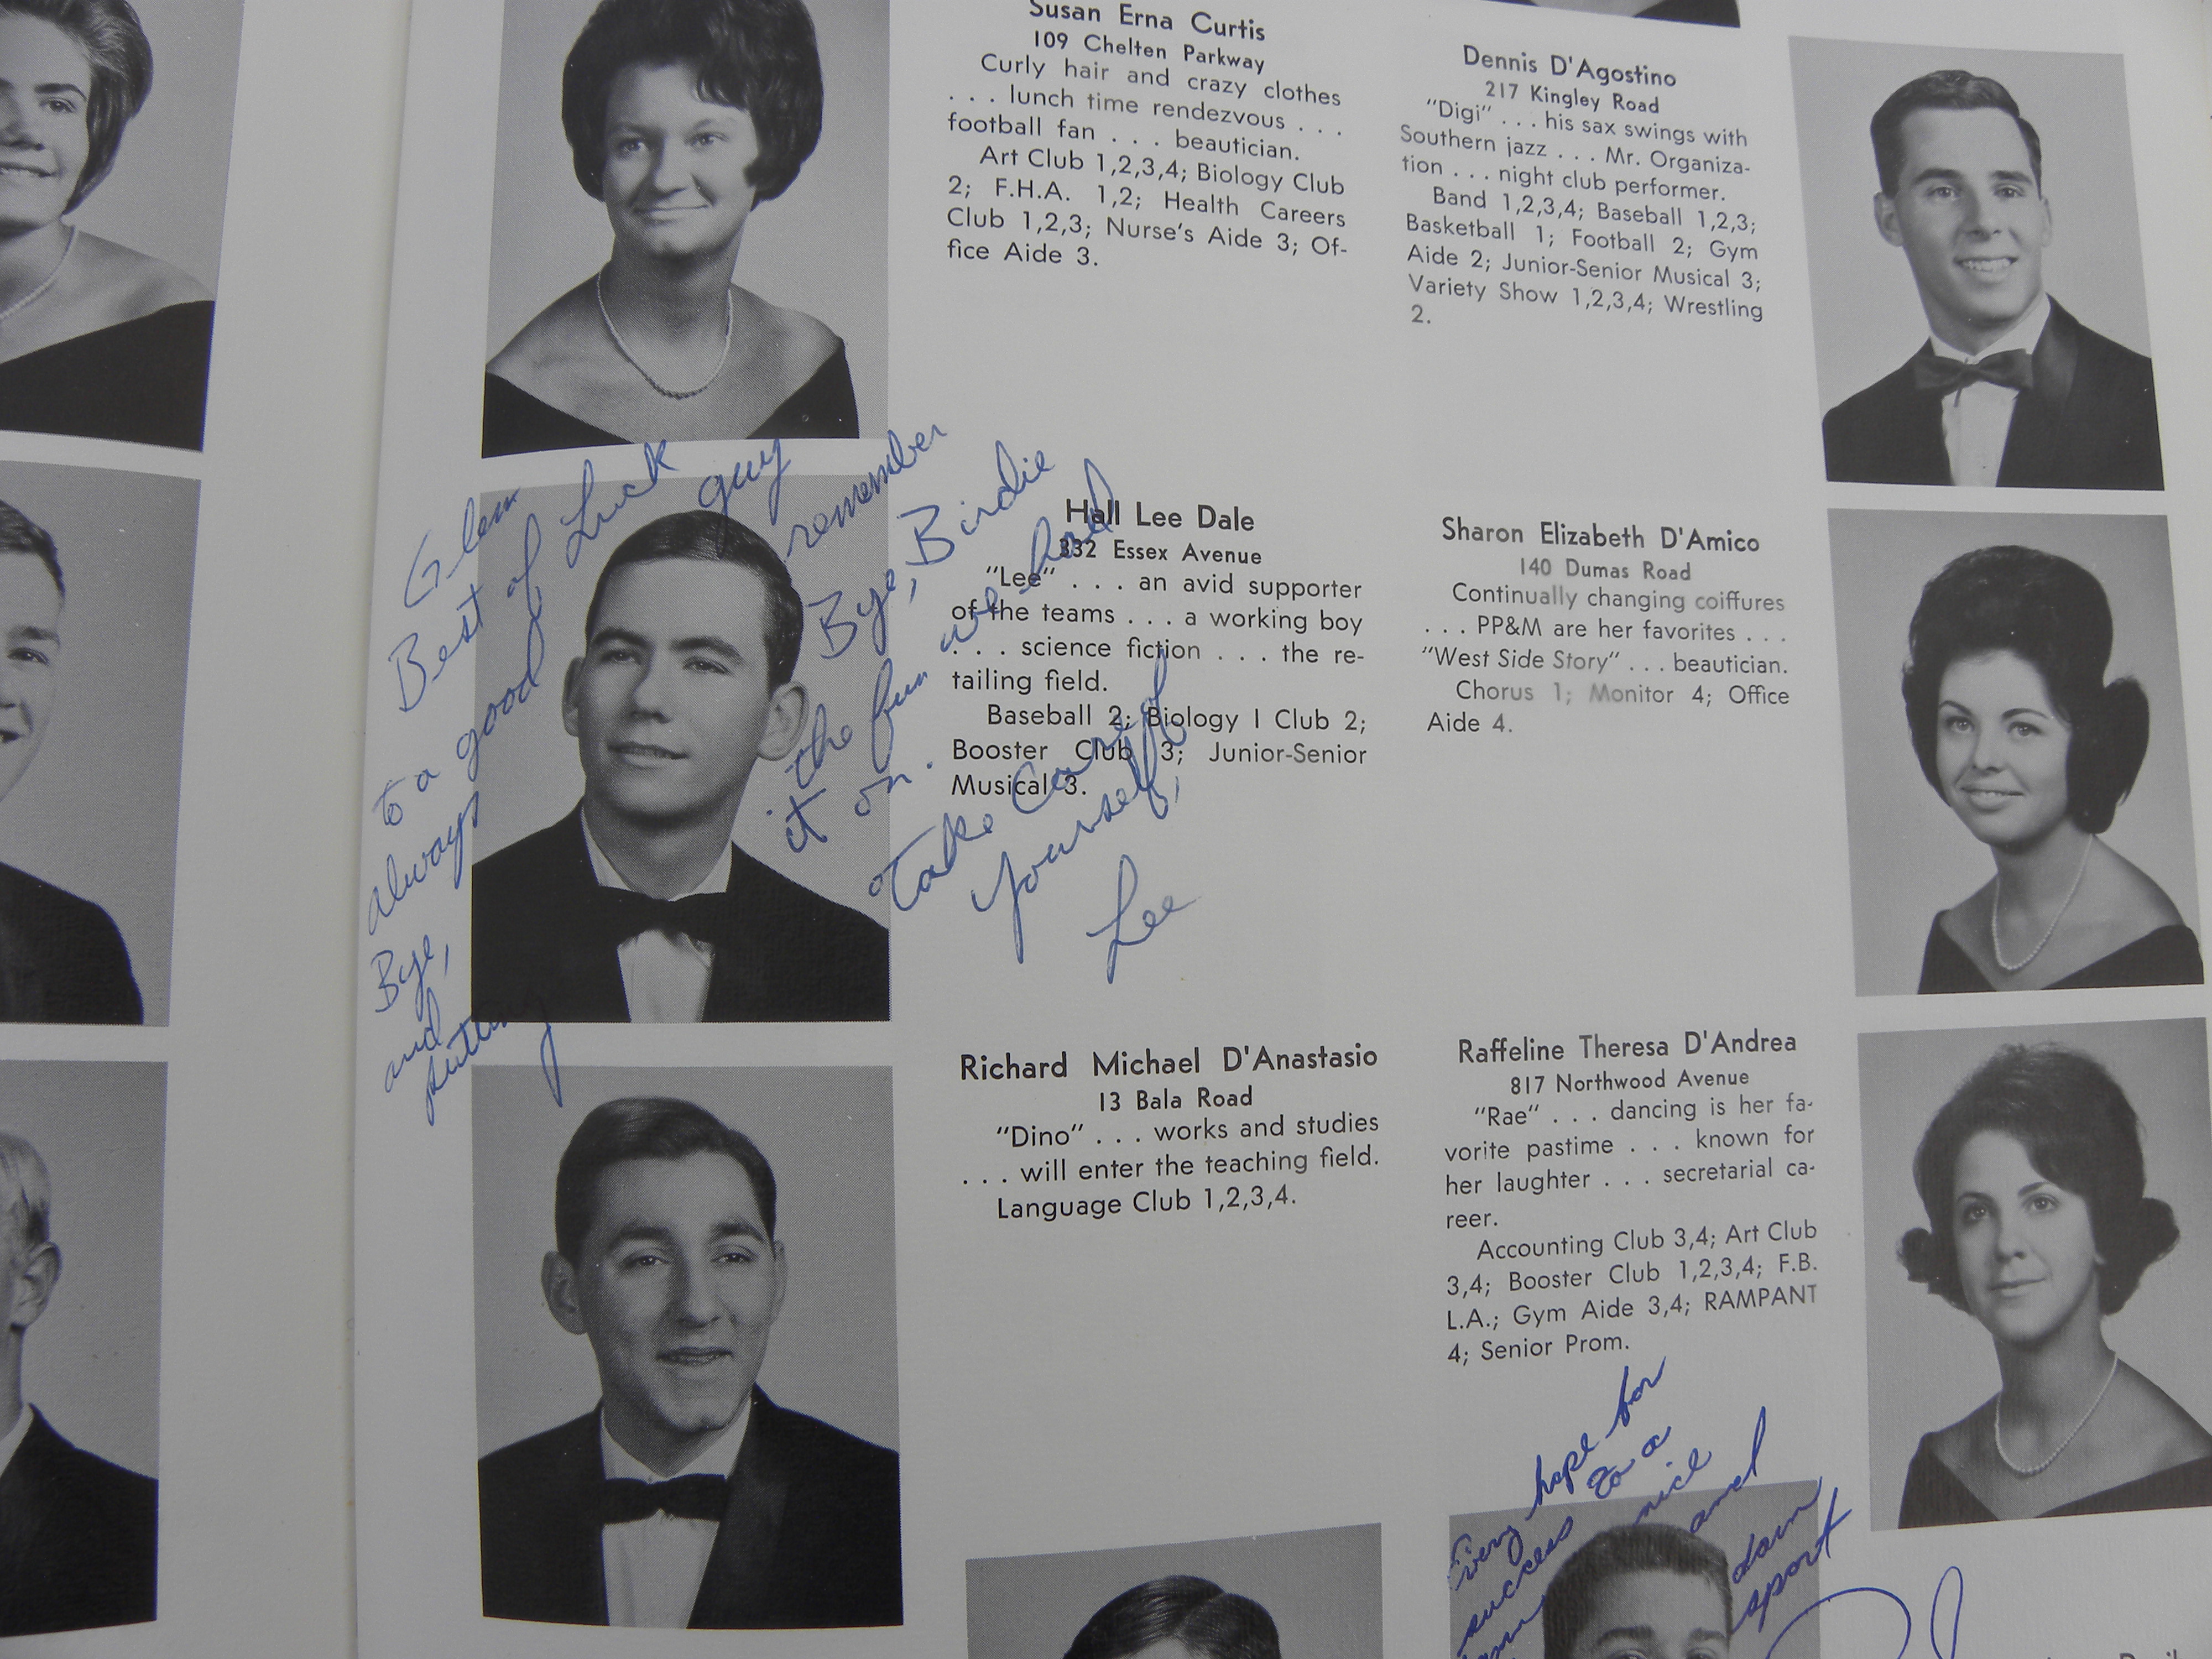 Susan Erna Curtis
109 Chelten Parkway
Curly hair and crazy clothes
. . . lunch time rendezvous . . .
football fan . . . beautician.
Art Club 1,2,3,4; Biology Club
2; F.H.A. 1,2; Health Careers
Club 1,2,3; Nurse's Aide 3; Of-
fice Aide 3.
Dennis D'Agostino
217 Kingley Road
"Digi" . . . his sax swings with
Southern jazz . . . Mr. Organiza-
tion . . . night club performer.
Band 1,2,3,4; Baseball 1,2,3;
Basketball 1; Football 2; Gym
Aide 2; Junior-Senior Musical 3;
Variety Show 1,2,3,4; Wrestling
2.
Glenn
Best of Luck
to a good guy
always remember
Bye, Bye, Birdie
and the fun we had
putting it on.
Take Care of
yourself,
Lee
Hall Lee Dale
332 Essex Avenue
"Lee" . . . an avid supporter
of the teams . . . a working boy
. . . science fiction . . . the re-
tailing field.
Baseball 2; Biology I Club 2;
Booster Club 3; Junior-Senior
Musical 3.
Sharon Elizabeth D'Amico
140 Dumas Road
Continually changing coiffures
. . . PP&M are her favorites . . .
"West Side Story" . . . beautician.
Chorus 1; Monitor 4; Office
Aide 4.
Richard Michael D'Anastasio
13 Bala Road
"Dino" . . . works and studies
. . . will enter the teaching field.
Language Club 1,2,3,4.
Raffeline Theresa D'Andrea
817 Northwood Avenue
"Rae" . . . dancing is her fa-
vorite pastime . . . known for
her laughter . . . secretarial ca-
reer.
Accounting Club 3,4; Art Club
3,4; Booster Club 1,2,3,4; F.B.
L.A.; Gym Aide 3,4; RAMPANT
4; Senior Prom.
Every hope for
success to a
nice
and
darn
sport